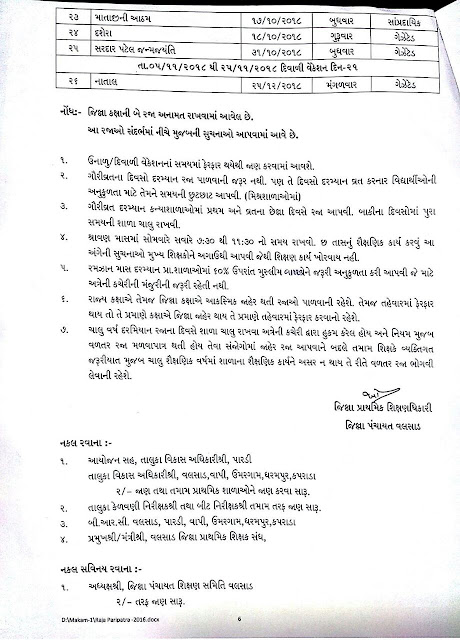 ૨૩ માતાજીની આઠમ ૧૭/૧૦/૨૦૧૮ બુધવાર સાંપ્રદાયિક
૨૪ દશેરા ૧૮/૧૦/૨૦૧૮ ગુરૂવાર ગેઝેટેડ
૨૫ સરદાર પટેલ જન્મજયંતિ ૩૧/૧૦/૨૦૧૮ બુધવાર ગેઝેટેડ
તા.૦૫/૧૧/૨૦૧૮ થી ૨૫/૧૧/૨૦૧૮ દિવાળી વેકેશન દિન-૨૧
૨૬ નાતાલ ૨૫/૧૨/૨૦૧૮ મંગળવાર ગેઝેટેડ
નોંધ:- જિલ્લા કક્ષાની બે રજા અનામત રાખવામાં આવેલ છે.
આ રજાઓ સંદર્ભમાં નીચે મુજબની સુચનાઓ આપવામાં આવે છે.
૧. ઉનાળુ/દિવાળી વેકેશનનાં સમયમાં ફેરફાર થયેથી જાણ કરવામાં આવશે.
૨. ગૌરીવ્રતના દિવસો દરમ્યાન રજા પાળવાની જરૂર નથી. પણ તે દિવસો દરમ્યાન વ્રત કરનાર વિદ્યાર્થીઓની
અનુકુળતા માટે તેમને સમયની છુટછાટ આપવી. (મિશ્રશાળાઓમાં)
૩. ગૌરીવ્રત દરમ્યાન કન્યાશાળાઓમાં પ્રથમ અને વ્રતના છેલ્લા દિવસે રજા આપવી. બાકીના દિવસોમાં પુરા
સમયની શાળા ચાલુ રાખવી.
૪. શ્રાવણ માસમાં સોમવારે સવારે ૭:૩૦ થી ૧૧:૩૦ નો સમય રાખવો. છ તાસનું શૈક્ષણિક કાર્ય કરવું આ
અંગેની સુચનાઓ મુખ્ય શિક્ષકોને અગાઉથી આપવી જેથી શિક્ષણ કાર્ય ખોરવાય નહી.
૫. રમઝાન માસ દરમ્યાન પ્રા.શાળાઓમાં ૬૦% ઉપરાંત મુસ્લીમ બાળકોને જરૂરી અનુકુળતા કરી આપવી જે માટે
અત્રેની કચેરીની મંજુરીની જરૂરી રહેતી નથી.
૬. રાજ્ય કક્ષાએ તેમજ જિલ્લા કક્ષાએ આકસ્મિક જાહેર થતી રજાઓ પાળવાની રહેશે. તેમજ તહેવારમાં ફેરફાર
થાય તો તે પ્રમાણે કક્ષાએ જિલ્લા જાહેર થાય તે પ્રમાણે તહેવારમાં ફેરફાર કરવાનો રહેશે.
૭. ચાલુ વર્ષ દરમિયાન રજાના દિવસો શાળા ચાલુ રાખવા અત્રેની કચેરી દ્વારા હુકમ કરેલ હોય અને નિયમ મુજબ
વળતર રજા મળવાપાત્ર થતી હોય તેવા સંજોગોમાં જાહેર રજા આપવાને બદલે તમામ શિક્ષકે વ્યક્તિગત
જરૂરીયાત મુજબ ચાલુ શૈક્ષણિક વર્ષમાં શાળાના શૈક્ષણિક કાર્યને અસર ન થાય તે રીતે વળતર રજા ભોગવી
લેવાની રહેશે.
જિલ્લા પ્રાથમિક શિક્ષણાધિકારી
જિલ્લા પંચાયત વલસાડ
નકલ રવાના :-
૧. આયોજન સહ, તાલુકા વિકાસ અધિકારીશ્રી, પારડી
તાલુકા વિકાસ અધિકારીશ્રી, વલસાડ,વાપી, ઉમરગામ,ધરમપુર,કપરાડા
૨/- જાણ તથા તમામ પ્રાથમિક શાળાઓને જાણ કરવા સારૂ.
૨. તાલુકા કેળવણી નિરીક્ષકશ્રી તથા બીટ નિરીક્ષકશ્રી તમામ તરફ જાણ સારૂ.
૩. બી.આર.સી. વલસાડ, પારડી, વાપી, ઉમરગામ,ધરમપુર,કપરાડા
૪. પ્રમુખશ્રી/મંત્રીશ્રી, વલસાડ જિલ્લા પ્રાથમિક શિક્ષક સંઘ,
નકલ સવિનય રવાના :-
૧. અધ્યક્ષશ્રી, જિલ્લા પંચાયત શિક્ષણ સમિતિ વલસાડ
૨/- તરફ જાણ સારૂ.
D:\Makam-1\Raja Paripatra -2016.docx 6